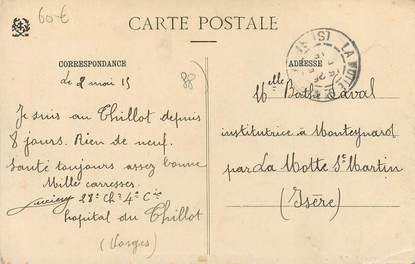 60€
CARTE POSTALE
CORRESPONDANCE
le 2 mai 15
Je suis au Thillot depuis
8 jours. Rien de neuf.
Santé toujours assez bonne
Mille caresses.
28e Ch. 4e Cie
hopital du Thillot
(Vosges)
88
ADRESSE
Melle Berthe Laval
institutrice à Monteynard
par La Motte St Martin
(Isère)